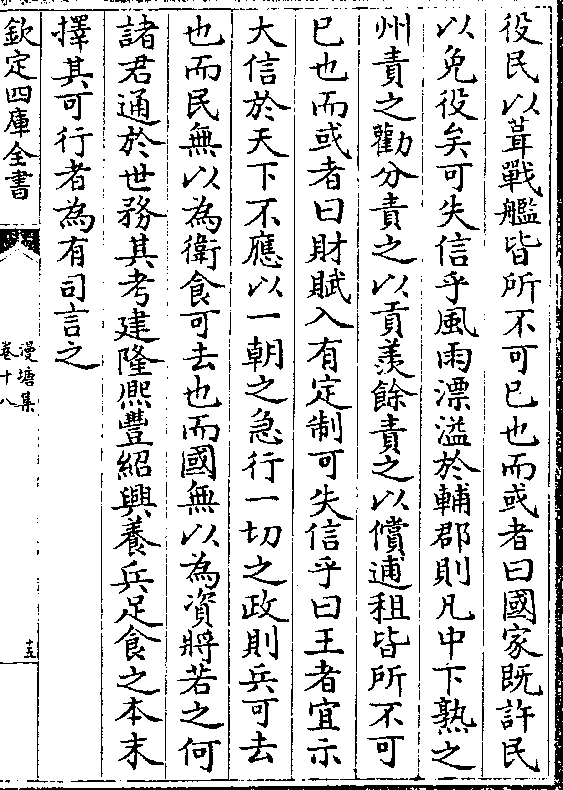 役民以葺戰艦皆所不可已也而或者曰國家既許民
以免役矣可失信乎風雨漂溢於輔郡則凡中下熟之
州責之勸分責之以貢羨餘責之以償逋租皆所不可
已也而或者曰財賦入有定制可失信乎曰王者宜示
大信於天下不應以一朝之急行一切之政則兵可去
也而民無以為衛食可去也而國無以為資將若之何
諸君通於世務其考建隆熙豐紹興養兵足食之本末
擇其可行者為有司言之
欽定四庫全書
漫塘集
卷十八
十五